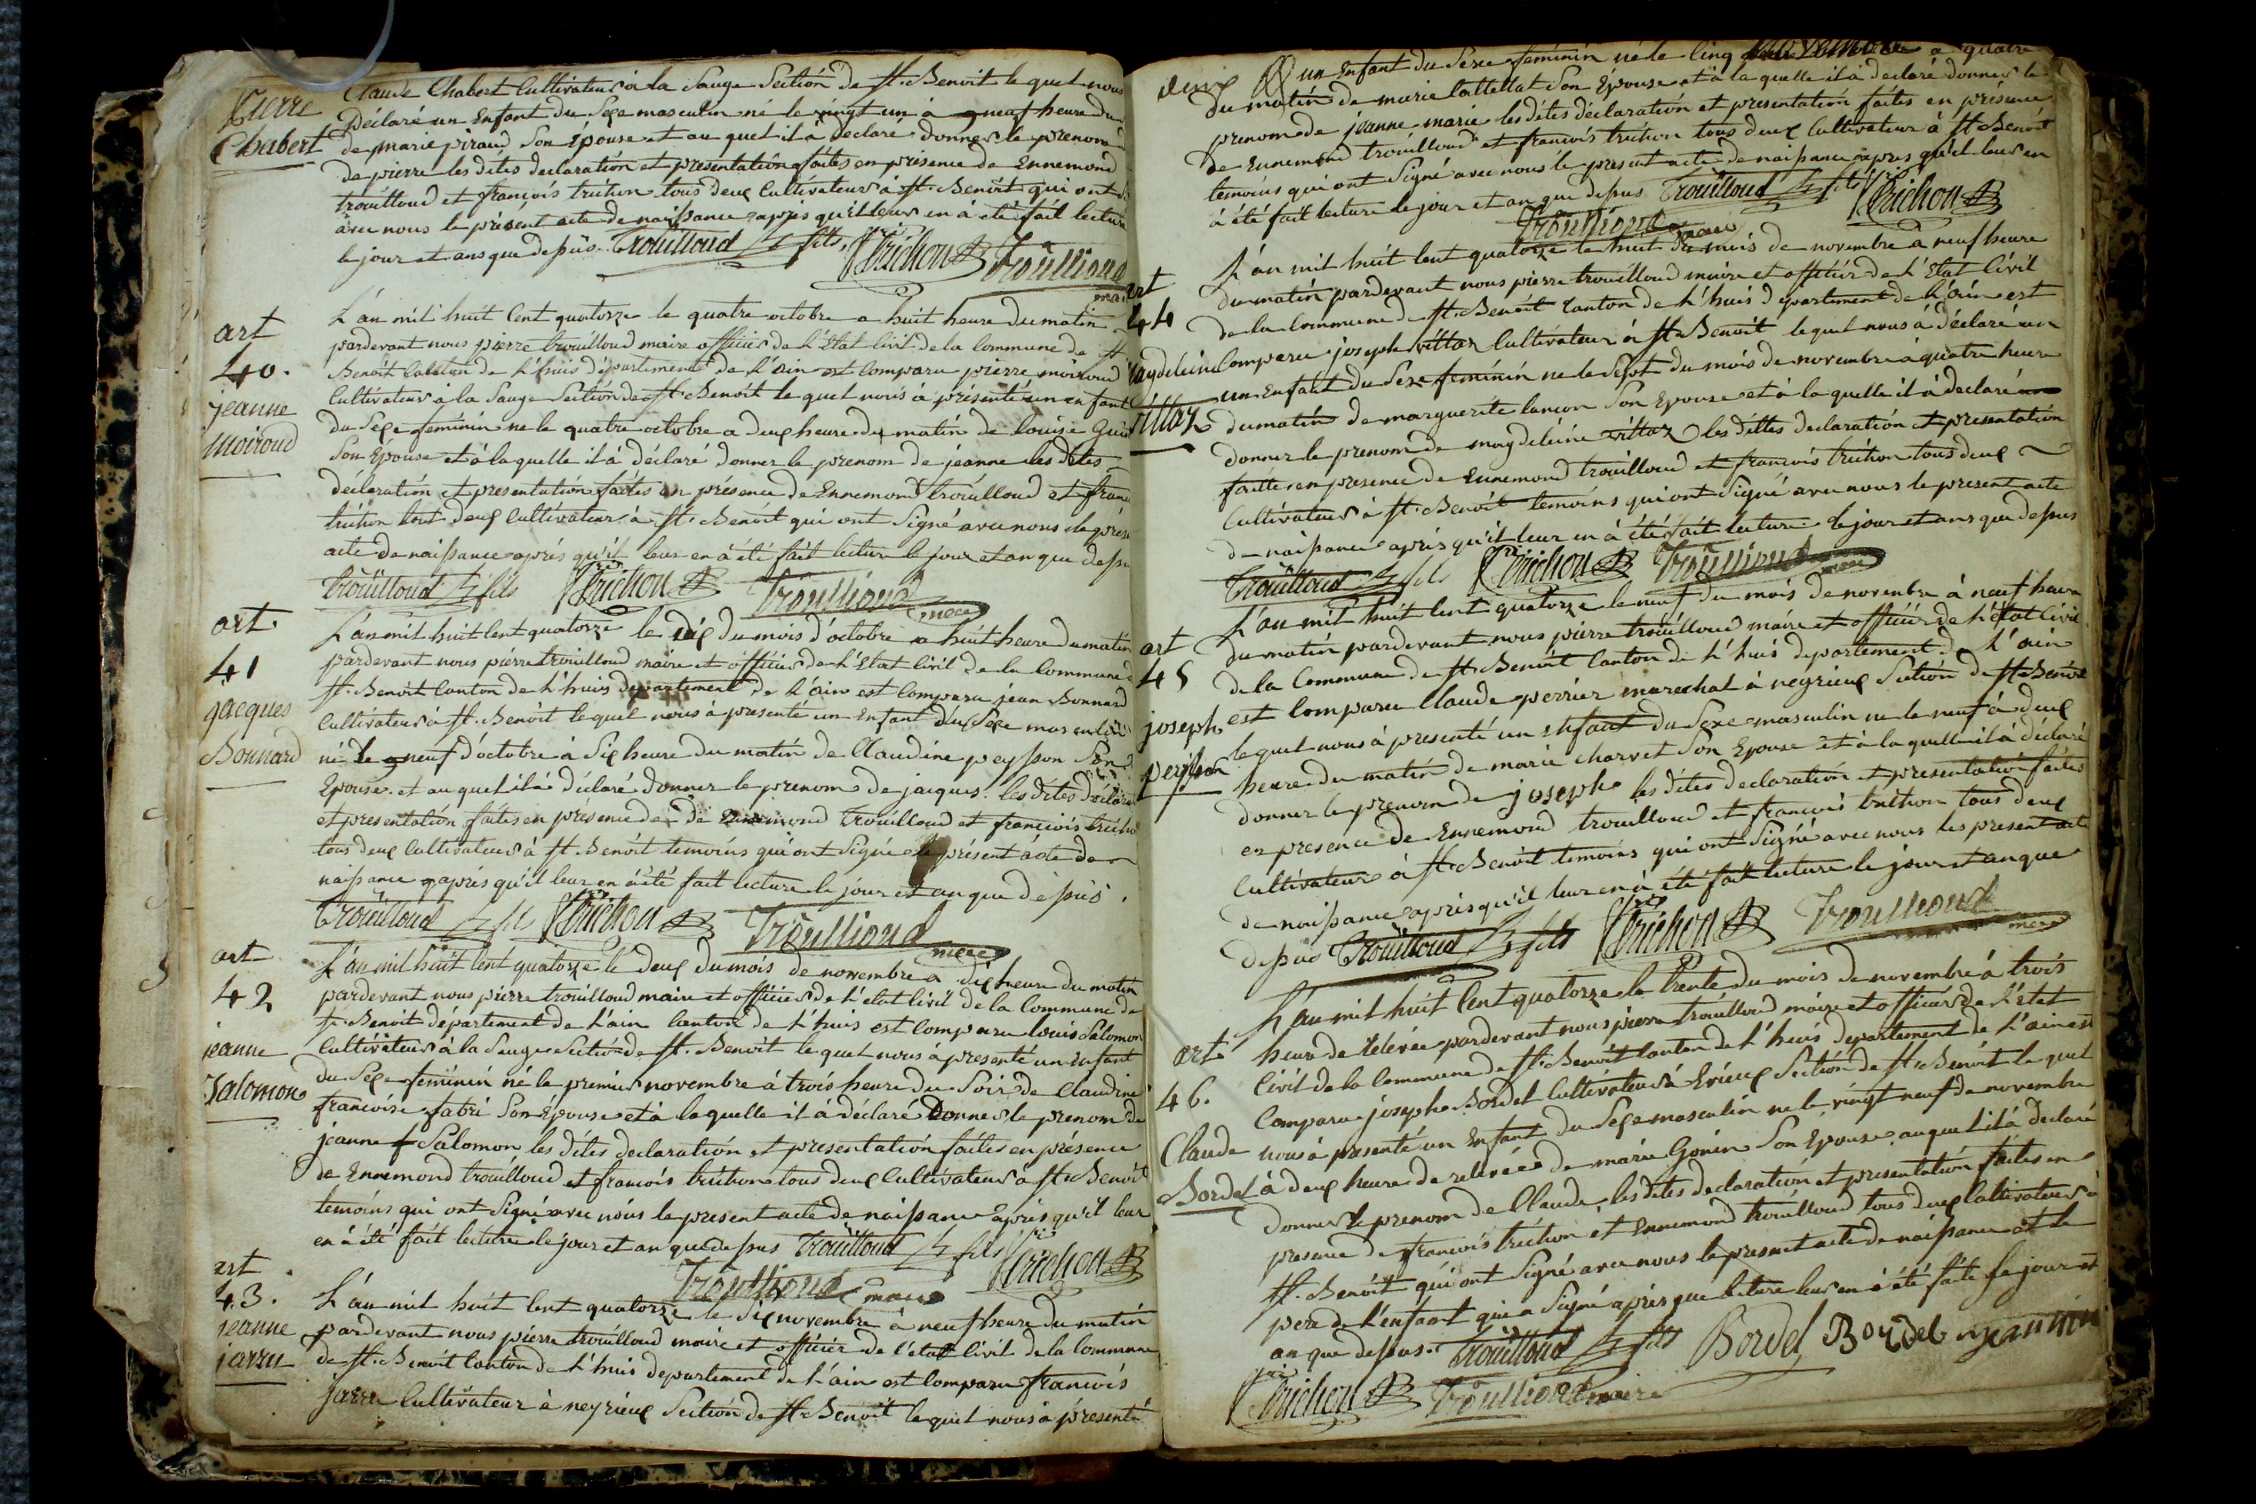 Pierre
Chabert
Claude Chabert Cultivateur à la Sauge Section de St. Benoit le quel nous
Déclaré un Enfant du Sexe masculin né le vingt un à neuf heure du
de marie piraud Son Epouse et au quel il à déclaré donner le prenom
de pierre les dites declaration et presentation faites en présence de Ennemond
trouilloud et françois trichon tous deux Cultivateur à St. Benoit qui ont
avec nous le présent acte de naissance après qu'il leur en à été fait lecture
le jour et ans que dessus. Trouilloud fils Trichon Troullioud
maire
art
40.
jeanne
Moiroud
L'án mil huit Cent quatorze le quatre octobre a huit heure du matin
pardevant nous pierre trouilloud maire officier de l'État Civil de la Commune de St
Benoit Canton de L'huis département de L'ain est Comparu pierre moiroud
Cultivateur à la Sauge Section de St. Benoit le quel nous à présenté un enfant
du Sexe feminin né le quatre octobre a deux heure du matin de louise
Son Epouse et à la quelle il à déclaré donner le prenom de jeanne les dites
déclaration et presentation faites en présence de Ennemond trouilloud et
trichon tout deux Cultivateur à St. Benoit qui ont Signé avec nous le
acte de naissance après qu'il leur en à été fait lecture le jour et an que
Trouilloud fils Trichon Troullioud
mere
art.
41
jacques
Bonnard
L'án mil huit Cent quatorze le dix du mois d'octobre a huit heure du matin
pardevant nous pierre trouilloud maire et officier de L'Etat Civil de la Commune
St. Benoit Canton de L'huis département de L'ain est Comparu jean Bonnard
Cultivateur à St. Benoit le quel nous à presenté un Enfant du Sexe masculin
né le neuf d'octobre à Six heure du matin de Claudine peysson Son
Epouse et au quel il à déclaré donner le prenom de jacques. les dites
et presentation faites en présence de de Ennemond trouilloud et françois
tous deux Cultivateur à St Benoit temoins qui ont Signé le présent acte de
naissance après qu'il leur en à été fait lecture le jour et an que dessus.
Trouilloud fils Trichon Troullioud
mere
art
42
jeanne
Salomon
L'án mil huit Cent quatorze le deux du mois de novembre a dix heure du matin
pardevant nous pierre trouilloud maire et officier de L'etat Civil de la Commune de
St. Benoit département de L'ain Canton de L'huis est Comparu louis Salomon
Cultivateur à la Sauge Section de St. Benoit le quel nous à présenté un Enfant
du Sexe feminin né le premier novembre à trois heure du Soir de Claudine
francoise fabri Son Epouse et à la quelle il à déclaré Donner le prenom de
jeanne Salomon les dites declaration et presentation faites en présence
de Ennemond trouilloud et francois trichon tous deux Cultivateur a St. Benoit
temoins qui ont Signé avec nous le present acte de naissance après qu'il leur
en à été fait lecture le jour et an que dessus Trouilloud fils Trichon
Troullioud maire
art
43.
jeanne
jarru
L'án mil huit Cent quatorze le Six novembre à neuf heure du matin
pardevant nous pierre trouilloud maire et officier de l'etat Civil de la Commune
de St. Benoit Canton de L'huis departement de L'ain est Comparu francois
jarru Cultivateur à neyrieux Section de St. Benoit le quel nous à présenté
un Enfant du Sexe féminin né le Cinq novembre a quatre
du matin de marie Son Epouse et à la quelle il à declaré donner le
prenom de jeanne marie les dites déclaration et presentation faites en présence
de Ennemond trouilloud et françois trichon tous deux Cultivateur à St Benoit
temoins qui ont Signé avec nous le present acte de naissance après qu'il leur en
à été fait lecture le jour et an que dessus Trouilloud fils Trichon
Troullioud maire
art
44
magdeleine
villaz
L'án mil huit Cent quatorze le huit du mois de novembre à neuf heure
du matin pardevant nous pierre trouilloud maire et officier de L'Etat Civil
de la Commune de St. Benoit Canton de L'huis departement de L'ain est
Comparu joseph villaz Cultivateur à St. Benoit le quel nous à déclaré un
un Enfant du Sexe feminin né le Sept du mois de novembre à quatre heure
du matin de marguerite lancon Son Epouse et à la quelle il à declaré
donner le prenom de magdeleine villaz les dittes declaration et presentation
faitte en presence de Ennemond trouilloud et francois trichon tous deux
Cultivateur à St. Benoit temoins qui ont Signé avec nous le present acte
de naissance après qu'il leur en à été fait lecture le jour et ans que dessus
Trouilloud fils Trichon Troullioud maire
art
45
joseph
perrier
L'án mil huit Cent quatorze le neuf du mois de novembre à neuf heure
du matin pardevant nous pierre trouilloud maire et officier de L'état Civil
de la Commune de St. Benoit Canton de L'huis departement de L'ain
est Comparu Claude perrier marechal à neyrieux Section de St Benoit
le quel nous à presenté un Enfant du Sexe masculin né le neuf à deux
heure du matin de marie charvet Son Epouse et à la quelle il à déclaré
donner le prenom de joseph les dites declaration et presentation faites
en presence de Ennemond trouilloud et francois trichon tous deux
Cultivateur à St. Benoit temoins qui ont Signé avec nous les present acte
de naissance après qu'il leur en à été fait lecture le jour et an que
dessus Trouilloud fils Trichon Troullioud
mere
art.
46.
Claude
Bordel
L'án mil huit Cent quatorze le trente du mois de novembre à trois
heure de relevée pardevant nous pierre trouilloud maire et officier de L'Etat
Civil de la Commune de St. Benoit Canton de L'huis departement de L'ain est
Comparu joseph Bordel Cultivateur à Evieux Section de St Benoit le quel
nous à presenté un Enfant du Sexe masculin né le vingt neuf de novembre
à deux heure de relevée de marie Gonin Son Epouse au quel il à declaré
donner le prenom de Claude, les dites declaration et presentation faites en
presence de francois trichon et Ennemond trouilloud tous deux Cultivateur à
St. Benoit qui ont Signé avec nous le present acte de naissance et le
pere de L'enfant qui a Signé après que lecture leur en à été faite le jour et
an que dessus. Trouilloud fils Bordel
Trichon Troullioud maire